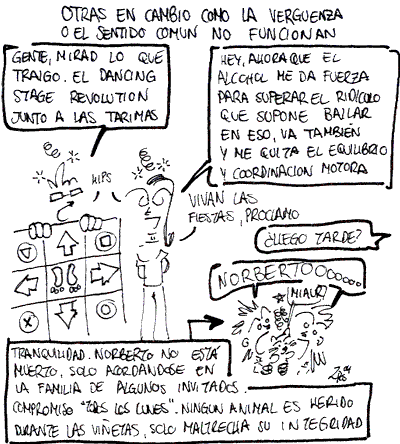 OTRAS EN CAMBIO COMO LA VERGUENZA
O EL SENTIDO COMUN NO FUNCIONAN
GENTE, MIRAD LO QUE
TRAIGO. EL DANCING
STAGE REVOLUTION
JUNTO A LAS TARIMAS
HEY, AHORA QUE EL
ALCOHOL ME DA FUERZA
PARA SUPERAR EL RIDÍCULO
QUE SUPONE BAILAR
EN ESO, VA TAMBIÉN
Y ME QUITA EL EQUILIBRIO
Y COORDINACION MOTORA
HIPS
VIVAN LAS
FIESTAS, PROCLAMO
¿LLEGO TARDE?
NORBERTOOOOOOO
MIAUR!
TRANQUILIDAD. NORBERTO NO ESTÁ
MUERTO, SOLO ACORDANDOSE EN
LA FAMILIA DE ALGUNOS INVITADOS.
COMPROMISO "LOS LUNES". NINGUN ANIMAL ES HERIDO
DURANTE LAS VIÑETAS, SOLO MALTRECHA SU INTEGRIDAD